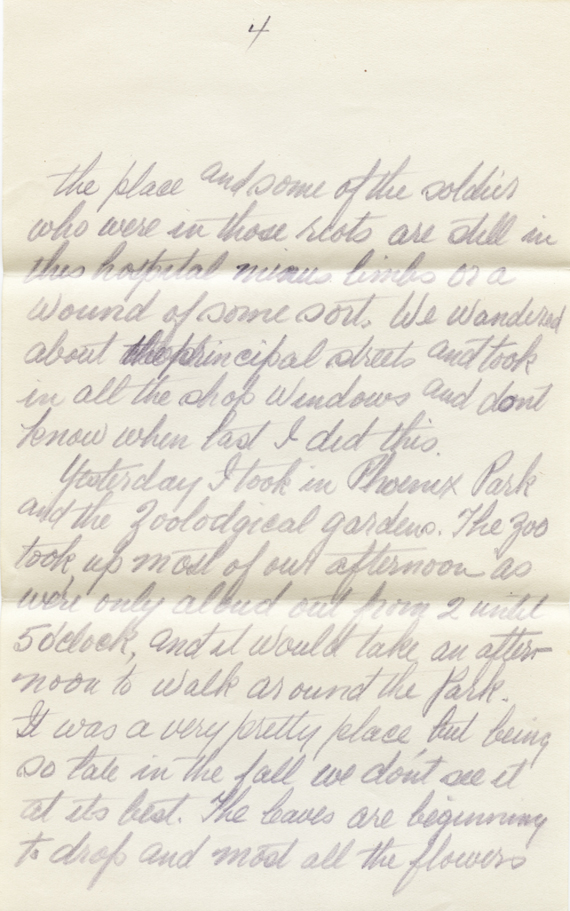 4
the place and some of the soldier
who were in those riots are still in
this hospital minus limbs or a
wound of some sort. We wandered
about the principal streets and took
in all the shop windows and dont
know when last I did this.
Yesterday I took in Phoenix Park
and the Zoolodgical gardens. The zoo
took up most of our afternoon as
we're only aloud out from 2 until
5 o'clock, and it would take an after-
noon to walk around the Park.
It was a very pretty place, but being
so late in the fall we don't see it
at its best. The leaves are beginning
to drop and most all the flowers